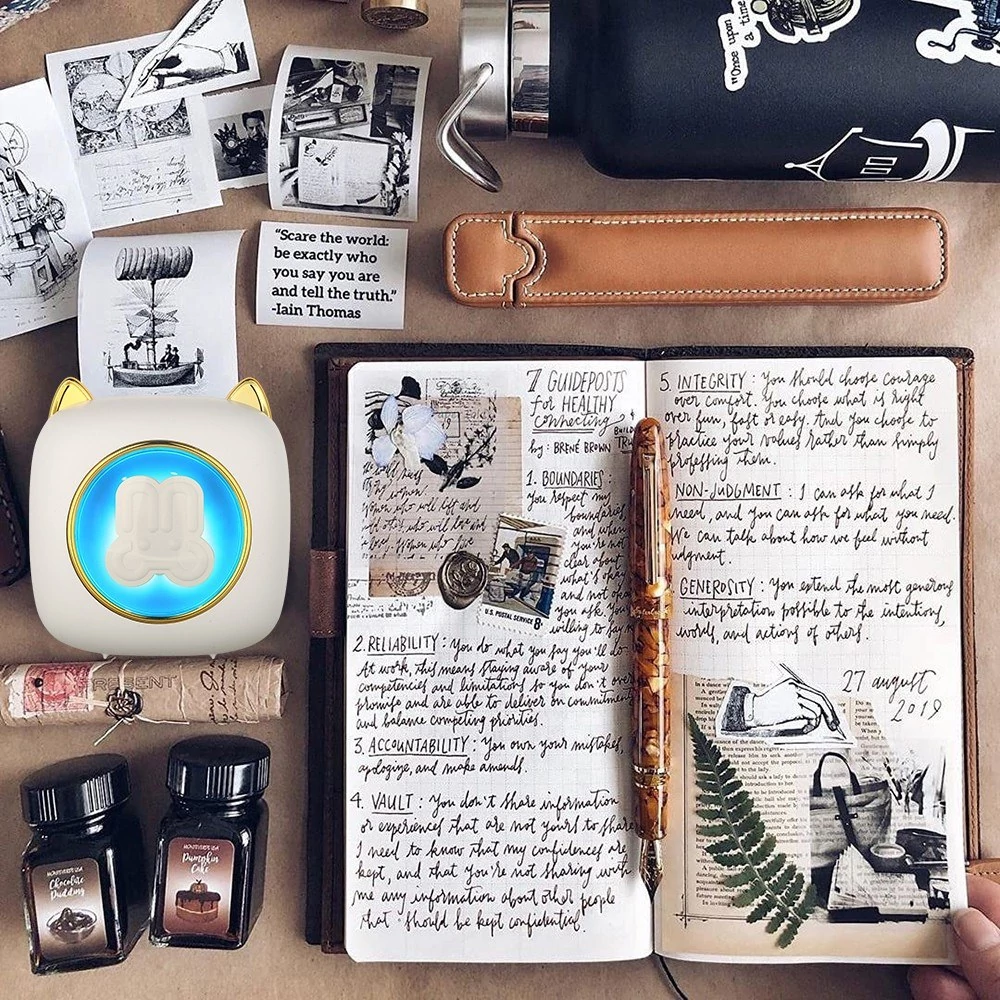 "Once upon
a time"
"Scare the world:
be exactly who
you say you are
and tell the truth."
-Iain Thomas
7 GUIDEPOSTS
for HEALTHY
connecting &
by: BRENÉ BROWN
1. BOUNDARIES:
you respect my
boundaries,
and when
you're not
clear about
what's okay
and not
you ask. You
willing to say
U.S. POSTAL SERVICE 8¢
2. RELIABILITY: You do what you say you'll do.
At work, this means staying aware of your
competencies and limitations so you don't over
promise and are able to deliver on commitments
and balance competing priorities.
3. ACCOUNTABILITY: You own your mistakes,
apologize, and make amends.
4. VAULT: You don't share information
or experiences that are not yours to share
I need to know that my confidences are
kept, and that you're not sharing with
me any information about other people
that should be kept confidential.
5. INTEGRITY: You should choose courage
over comfort. You choose what is right
over fun, fast or easy. And you choose to
practice your values rather than simply
professing them.
NON-JUDGMENT: I can ask for what I
need, and you can ask for what you need.
We can talk about how we feel without
judgment.
GENEROSITY: You extend the most generous
interpretation possible to the intentions,
words, and actions of others.
27 august
2019
PRESENT
MONTEVERDE USA
Chocolate
Pudding
MONTEVERDE USA
Pumpkin
Cake